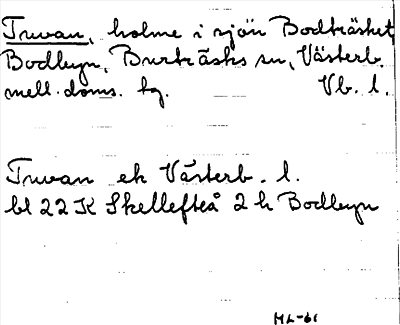 Truvan, holme i sjön Bodträsket
Bodbyn, Burträsks sn, Västerb.
mell. doms. tg. Vb. l.
Truvan ek Västerb. l.
bl 22 K Skellefteå 2 h Bodbyn
ML-61